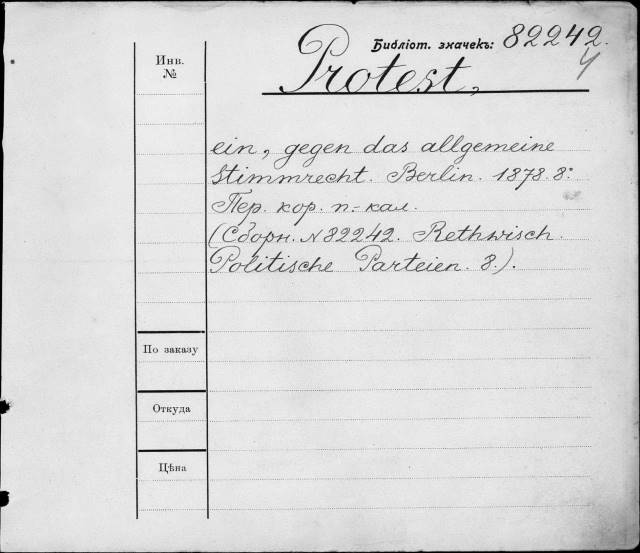 Библіот. значекъ: 82242.
4
Инв.
№
Protest,
ein, gegen das allgemeine
Stimmrecht. Berlin. 1878. 8:
Пер. кор. п.-кал.
(Сборн. N 82242. Rethwisch.
Politische Parteien. 8.).
По заказу
Откуда
Цѣна